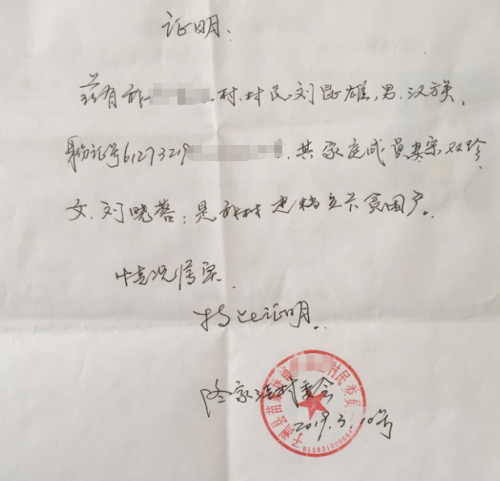 证明.
兹有我██村.村民刘昆雄,男.汉族,
身份证号61273219██.其家庭成员妻宋双珍
女.刘晓蓉:是我村建档立卡贫困户。
情况属实
特此证明.
村委会
2019.3.10号
子洲县苗 村民委员会